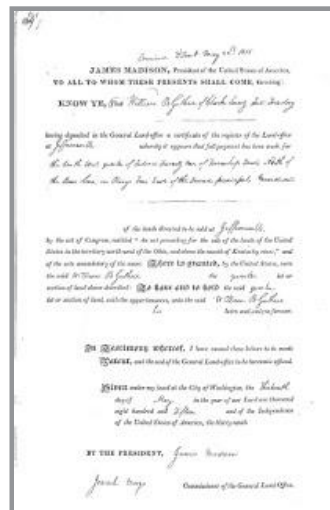 JAMES MADISON, President of the United States of America,
TO ALL TO WHOM THESE PRESENTS SHALL COME, Greeting:
KNOW YE, That William of Clark County
having deposited in the General Land-office a certificate of the register of the Land-office
at Jeffersonville whereby it appears that full payment has been made for
the quarter of section of Township North of
the Base Line, in Range East of the Second principal Meridian
of the lands directed to be sold at Jeffersonville
by the act of Congress, entitled "An act providing for the sale of the lands of the United
States in the territory north-west of the Ohio, and above the mouth of Kentucky river," and
of the acts amendatory of the same: There is granted, by the United States, unto
the said William the quarter lot or
section of land above described: To have and to hold the said quarter
lot or section of land, with the appurtenances, unto the said William
his heirs and assigns forever.
In Testimony whereof, I have caused these letters to be made
Patent, and the seal of the General Land-office to be hereunto affixed.
Given under my hand at the City of Washington, the
day of May in the year of our Lord one thousand
eight hundred and fifteen and of the Independence
of the United States of America, the thirty-ninth
BY THE PRESIDENT, James Madison
Josiah Meigs Commissioner of the General Land Office.